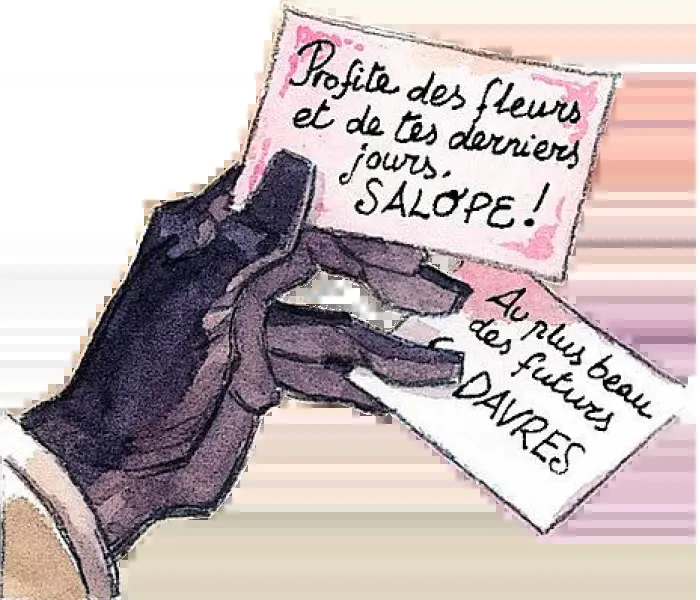 Profite des fleurs
et de tes derniers
jours.
SALOPE !
Au plus beau
des futurs
DAVRES